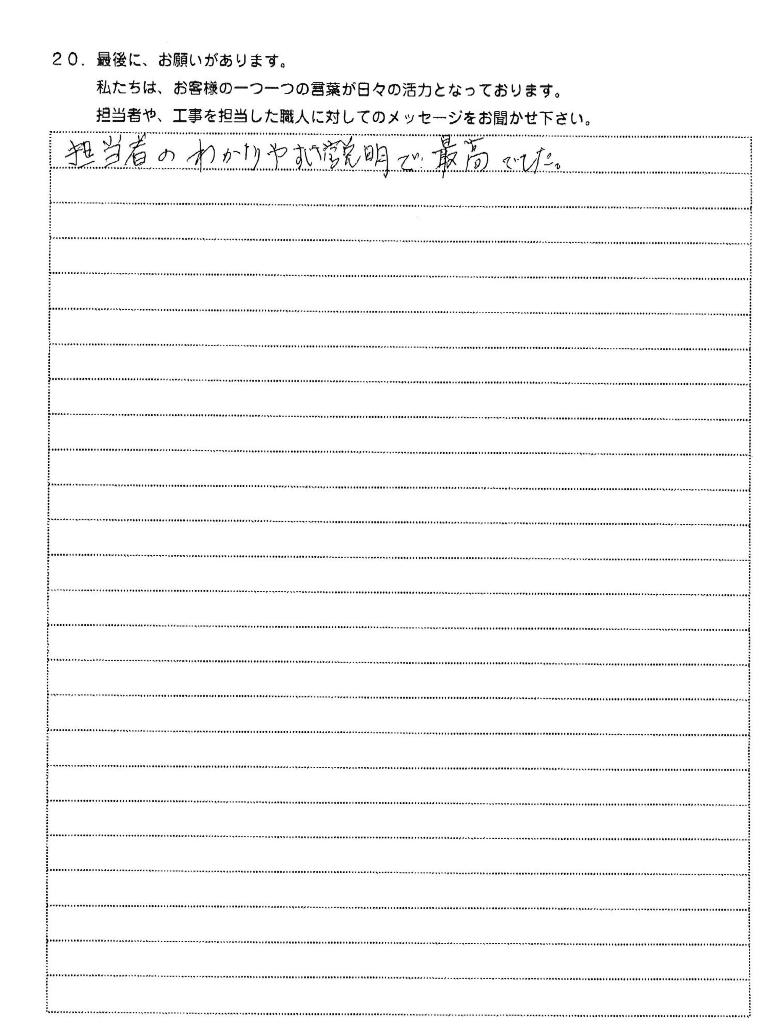 20. 最後に、お願いがあります。
私たちは、お客様の一つ一つの言葉が日々の活力となっております。
担当者や、工事を担当した職人に対してのメッセージをお聞かせ下さい。
担当者のわかりやすい説明で、最高でした。